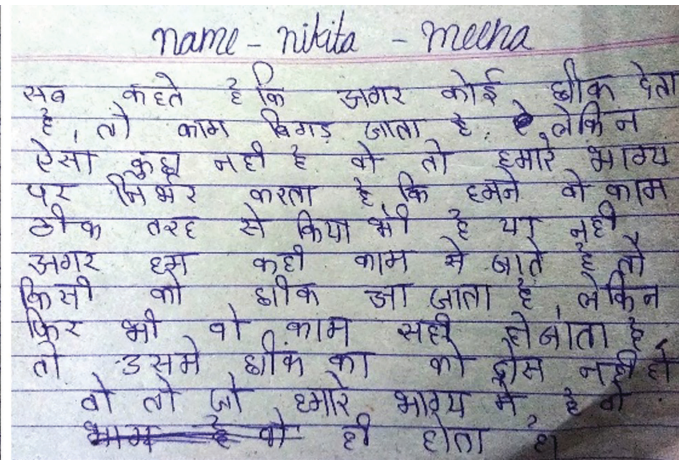 name - nikita - meena
सब कहते है कि अगर कोई छीक देता
है, तो काम बिगड़ जाता है, लेकिन
ऐसा कुछ नही है वो तो हमारे भाग्य
पर निर्भर करता है, कि हमने वो काम
ठीक तरह से किया भी है या नही
अगर हम कही काम मे जाते है तो
किसी को छीक आ जाता है, लेकिन
फिर भी वो काम सही हो जाता है
तो उसमे छीक का को दोस नही है
वो तो जो हमारे भाग्य मे है वो
वो ही होता है।